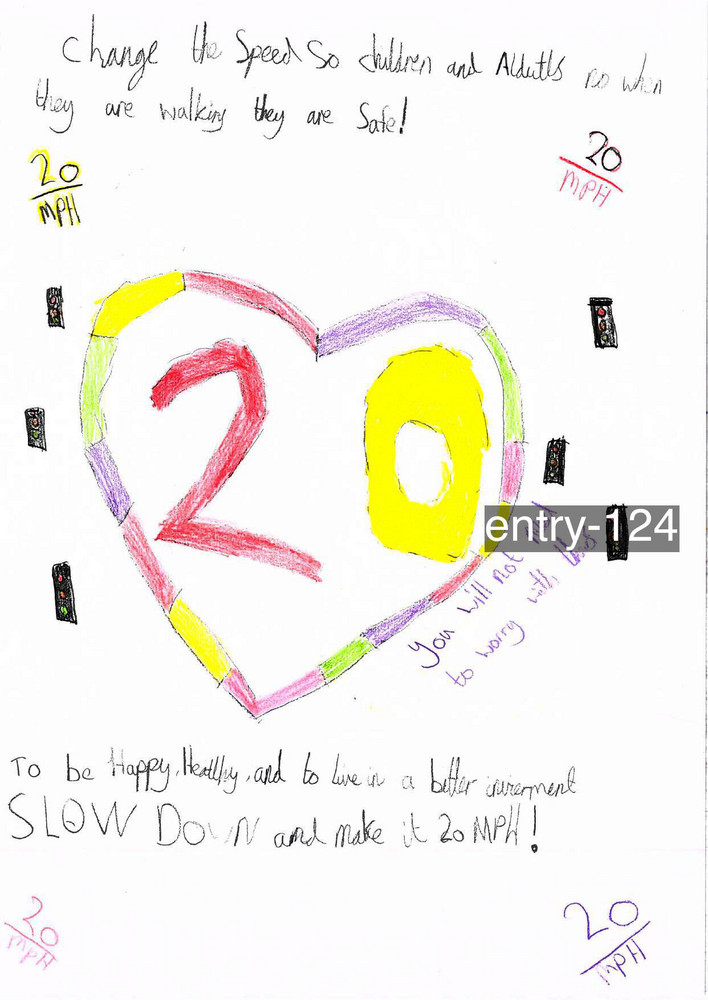 Change the Speed So children and Aldutls no when
they are walking they are Safe!
20
MPH
20
MPH
20
entry-124
you will not
to worry with
To be Happy, Healthy, and to live in a better
SLOW DOWN and make it 20 MPH!
20
MPH
20
MPH